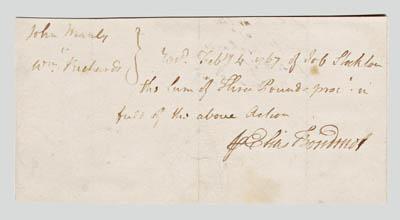 John Manly
Wm Richards } Recd. Feby 4 1767 of Job Stockton
the Sum of Three Pounds proc. in
full of the above Action
Elias Boudinot